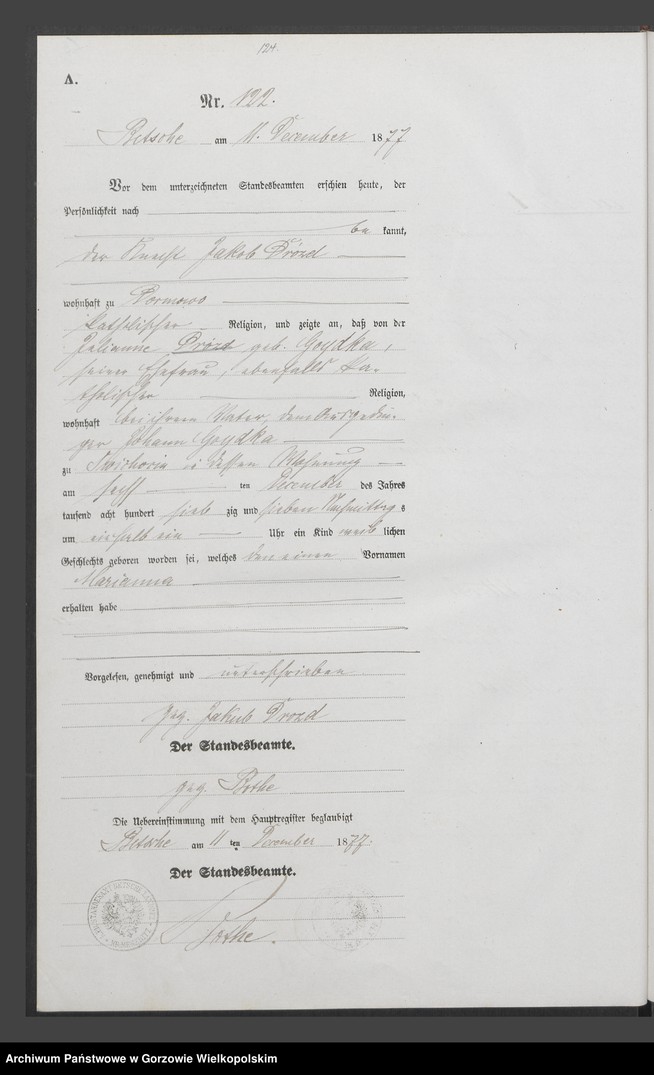 124.
A.
Nr. 122.
Betsche am 11. December 1877
Vor dem unterzeichneten Standesbeamten erschien heute, der
Persönlichkeit nach
be kannt,
der Knecht Jakob Drozd
wohnhaft zu
katholischer Religion, und zeigte an, daß von der
Julianne Drozd geb. Goydka,
seiner Ehefrau, ebenfalls ka-
tholischer Religion,
wohnhaft bei ihrem Vater, dem Ausgedin-
ger Johann Goydka
zu in dessen Wohnung
am sechs ten December des Jahres
tausend acht hundert sieb zig und sieben Nachmittag s
um einhalb ein Uhr ein Kind weib lichen
Geschlechts geboren worden sei, welches den einen Vornamen
Marianna
erhalten habe
Vorgelesen, genehmigt und unterschrieben
gez. Jakub Drozd
Der Standesbeamte.
gez. Bothe
Die Uebereinstimmung mit dem Hauptregister beglaubigt
Betsche am 11 ten December 1877.
Der Standesbeamte.
Bothe.
Archiwum Państwowe w Gorzowie Wielkopolskim